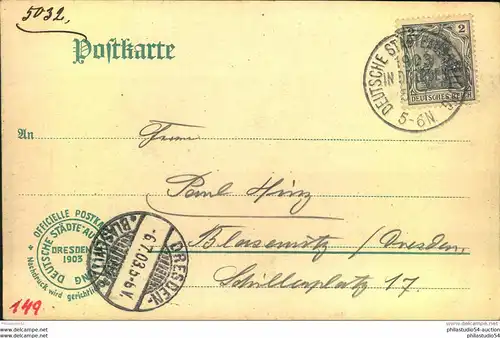 5032,
Postkarte
2
DEUTSCHES REICH
DEUTSCHE STÄDTEAUSSTELLUNG
1903
IN DRESDEN
5-6N.
An
Herrn
Paul Hinz
Blasewitz/Dresden.
Schillerplatz 17.
* OFFICIELLE POSTKARTE
DEUTSCHE STÄDTE-AU
NG
DRESDEN
1903
Nachdruck wird gerichtlich
BLASEWITZ
DRESDEN-
-6.7.03.5-6V.
149
philasearch54
philastudio54